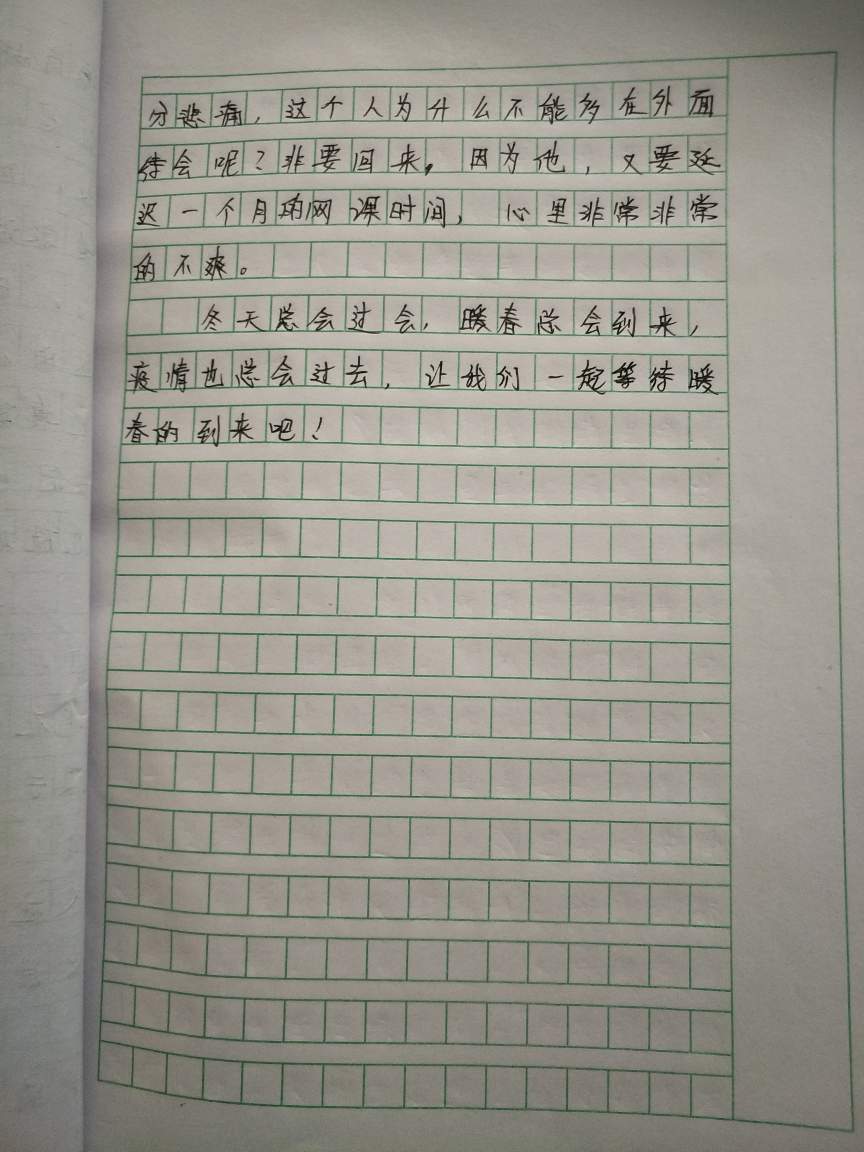 分悲痛，这个人为什么不能多在外面
待会呢？非要回来，因为他，又要延
迟一个月的网课时间，心里非常非常
的不爽。
冬天总会过会，暖春总会到来，
疫情也总会过去，让我们一起等待暖
春的到来吧！